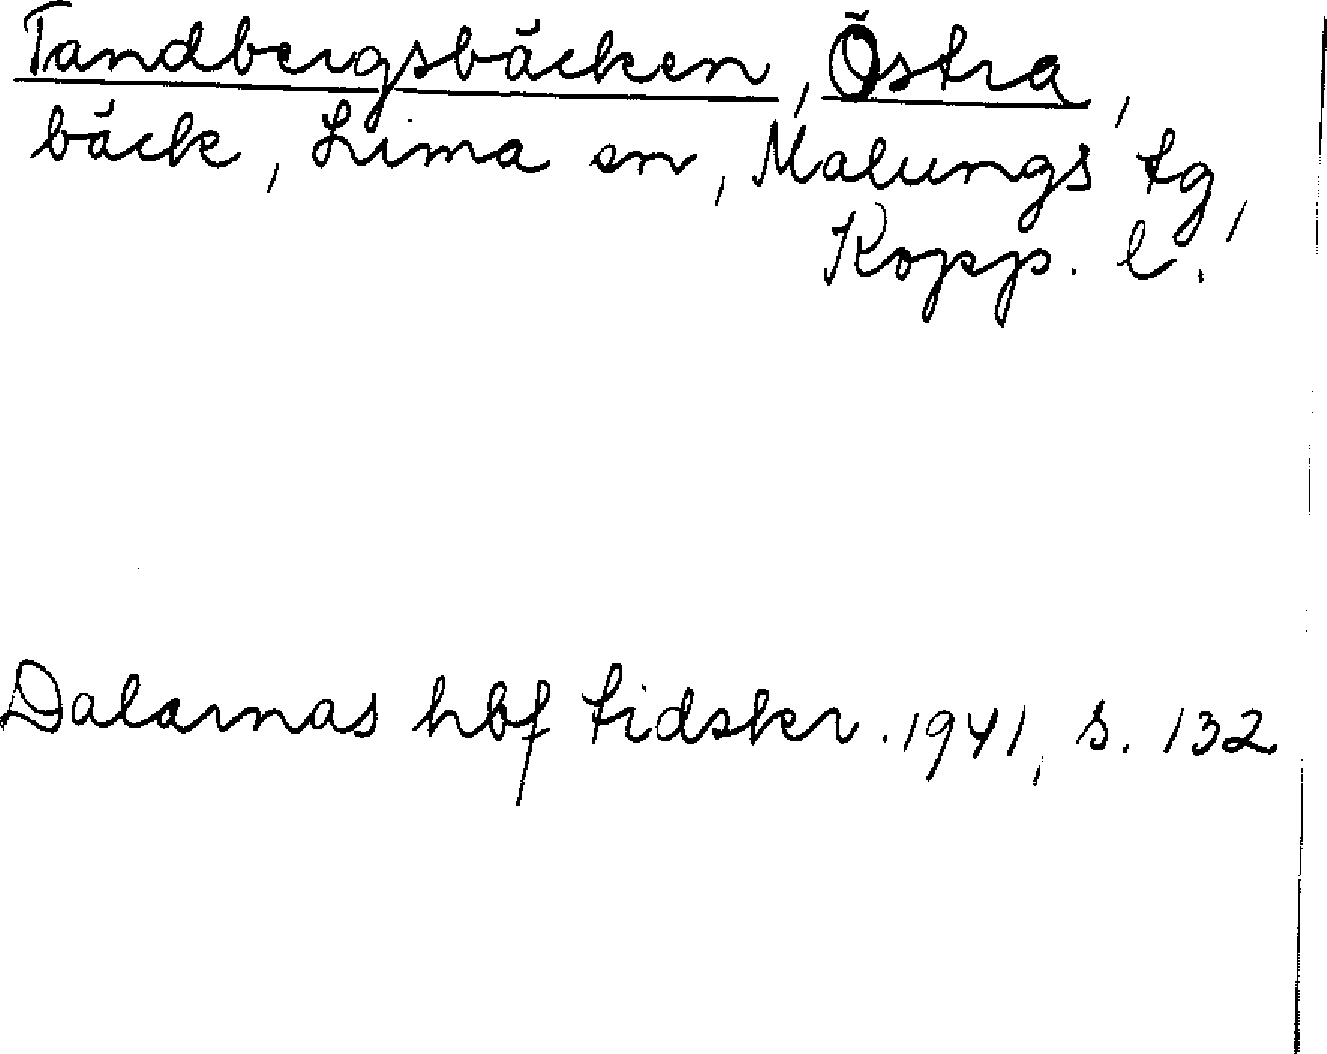 Tandbergsbäcken, Östra,
bäck, Lima sn, Malungs tg,
Kopp. l.
Dalarnas hbf tidskr. 1941, s. 132